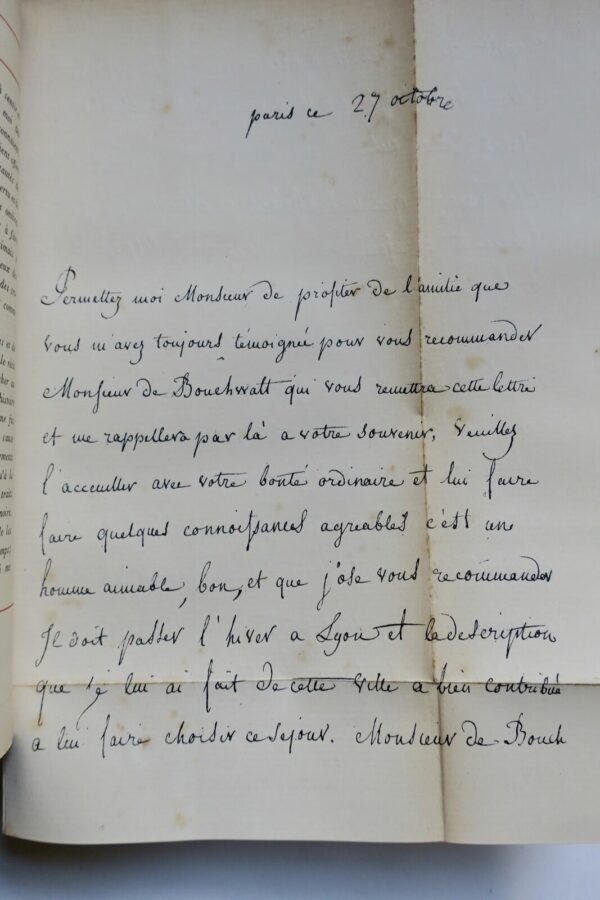 paris ce 27 octobre
Permettez moi Monsieur de profiter de l'amitié que
vous m'avez toujours témoignée pour vous recommander
Monsieur de Bouchwatt qui vous remettra cette lettre
et me rappellera par là a votre souvenir, Veuillez
l'acceuiller avec votre bonté ordinaire et lui faire
faire quelques connoissances agreables c'est un
homme aimable, bon, et que j'ose vous recommander
Il doit passer l'hiver a Lyon et la description
que je lui ai fait de cette ville a bien contribué
a lui faire choisir ce sejour. Monsieur de Bouch